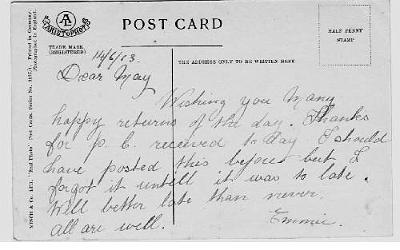 ARISTOPHOT
TRADE MARK
(REGISTERED)
POST CARD
HALF PENNY
STAMP
THE ADDRESS ONLY TO BE WRITTEN HERE
14/6/03
Dear May
Wishing you Many
happy returns of the day. Thanks
for p.c. received to day I should
have posted this before but I
forgot it untill it was to late.
Well better late than never.
all are well. Emmie.